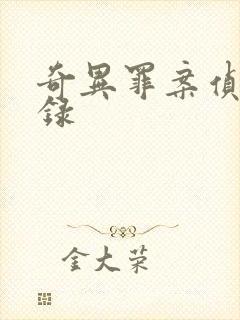 奇異罪案偵
錄
金大荣